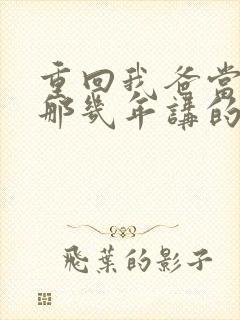 重回我爸當
那幾年講的
飛葉的影子